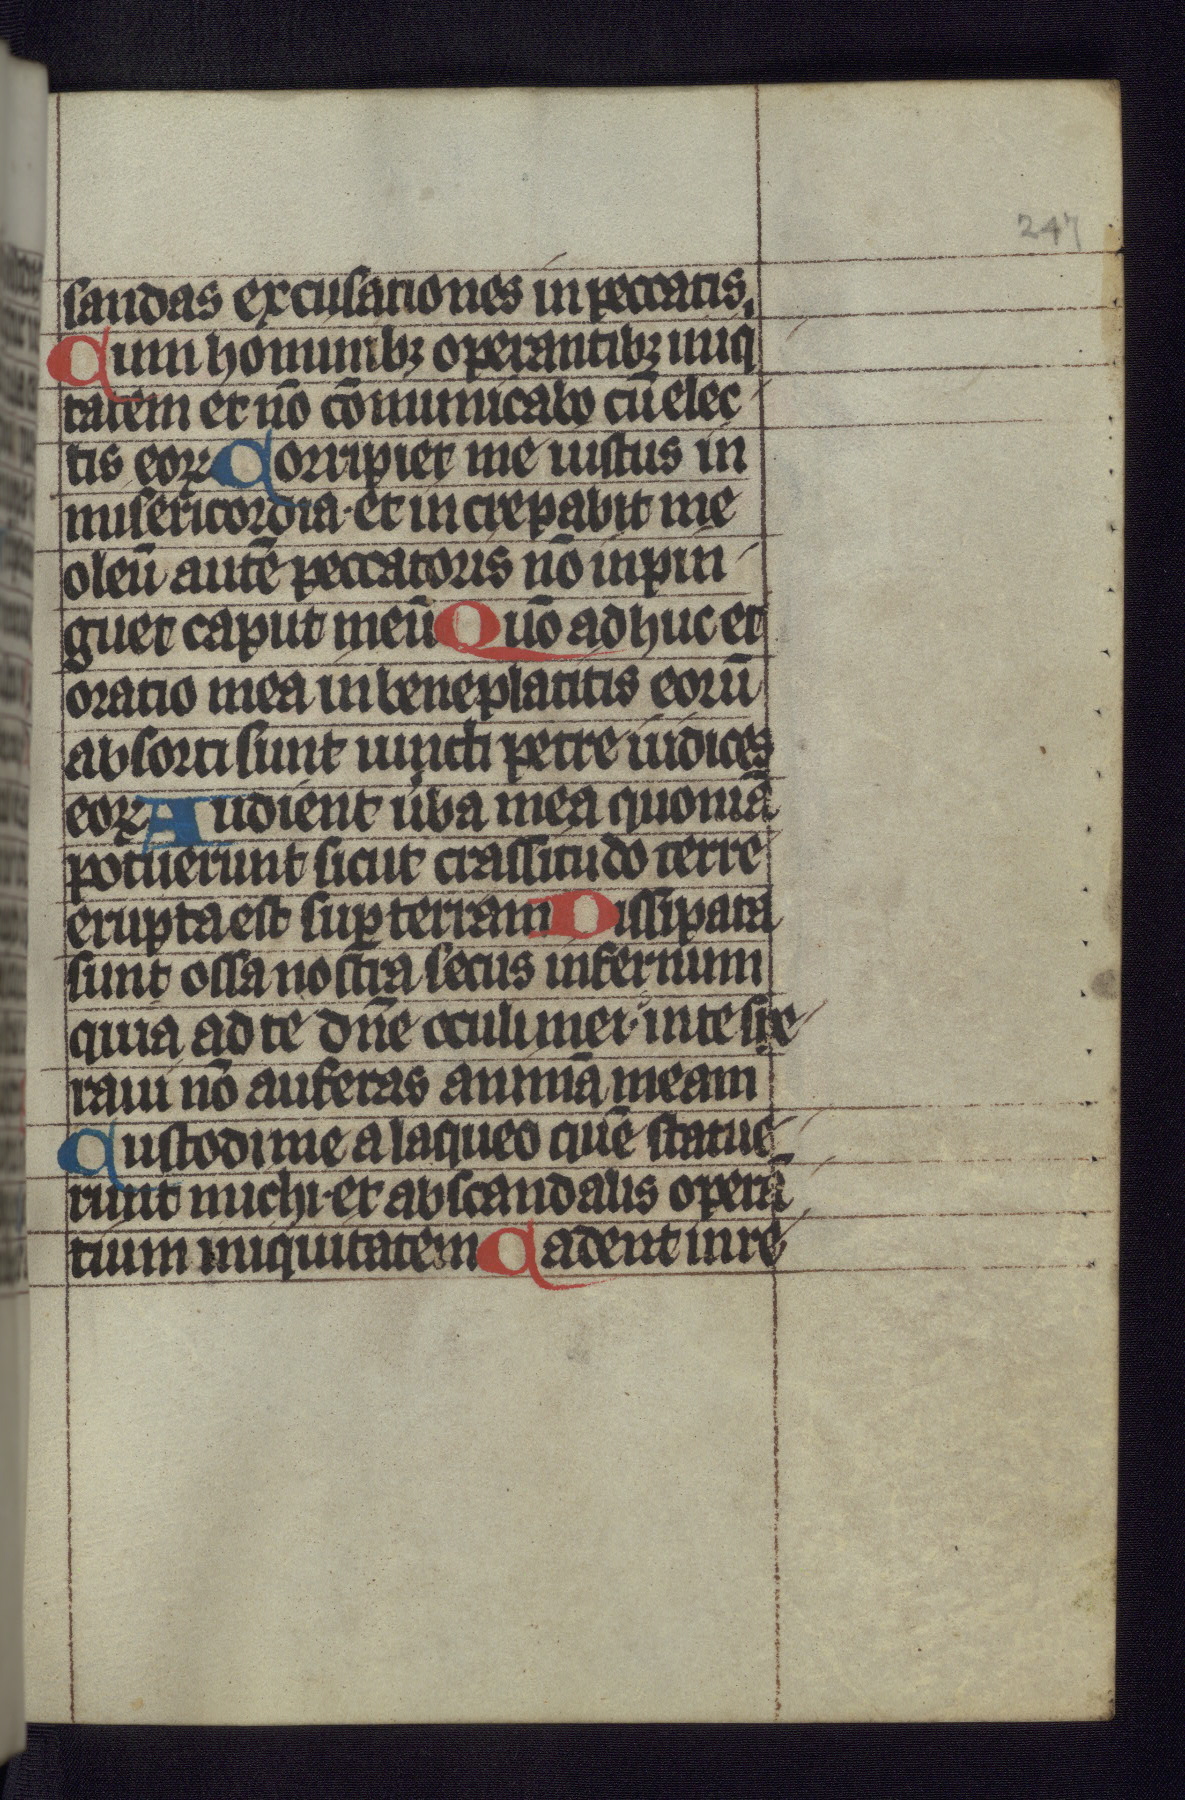 247
sandas excusationes in peccatis.
Cum hominibꝫ operantibꝫ iniq
tatem et nō cōmunicabo cū elec
tis eoꝝ Corripiet me iustus in
misericordia · et increpabit me
oleū autē peccatoris nō inpin
guet caput meū Quō adhuc et
oratio mea in beneplatitis eorū
absorti sunt iuncti petre iudices
eoꝝ Audient úba mea quoniā
potuerunt sicut crassitudo terre
erupta est suꝑ terram Dissipata
sunt ossa nostra secus infernum
quia ad te dn̄e oculi mei · in te spe
raui nō auferas animā meam
Custodi me a laqueo quē statue
runt michi · et ab scandalis operā
tium iniquitatem Cadent in re